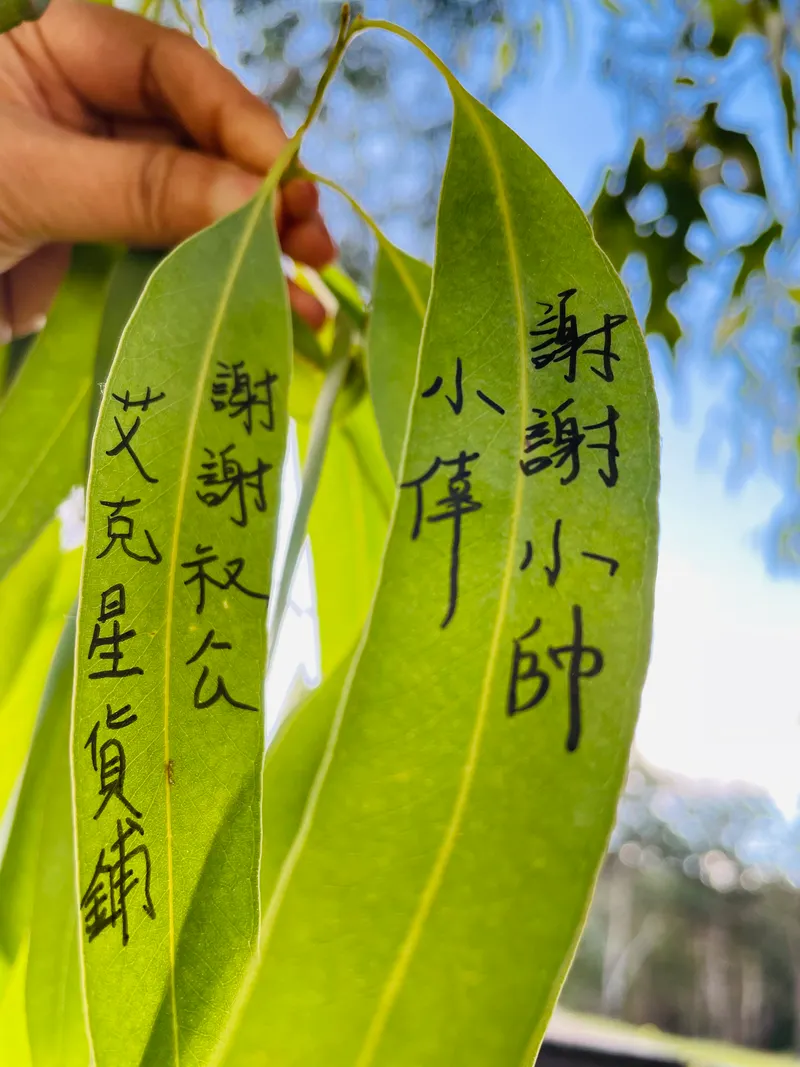 謝謝小帥
小偉
謝謝叔公
艾克星貨鋪